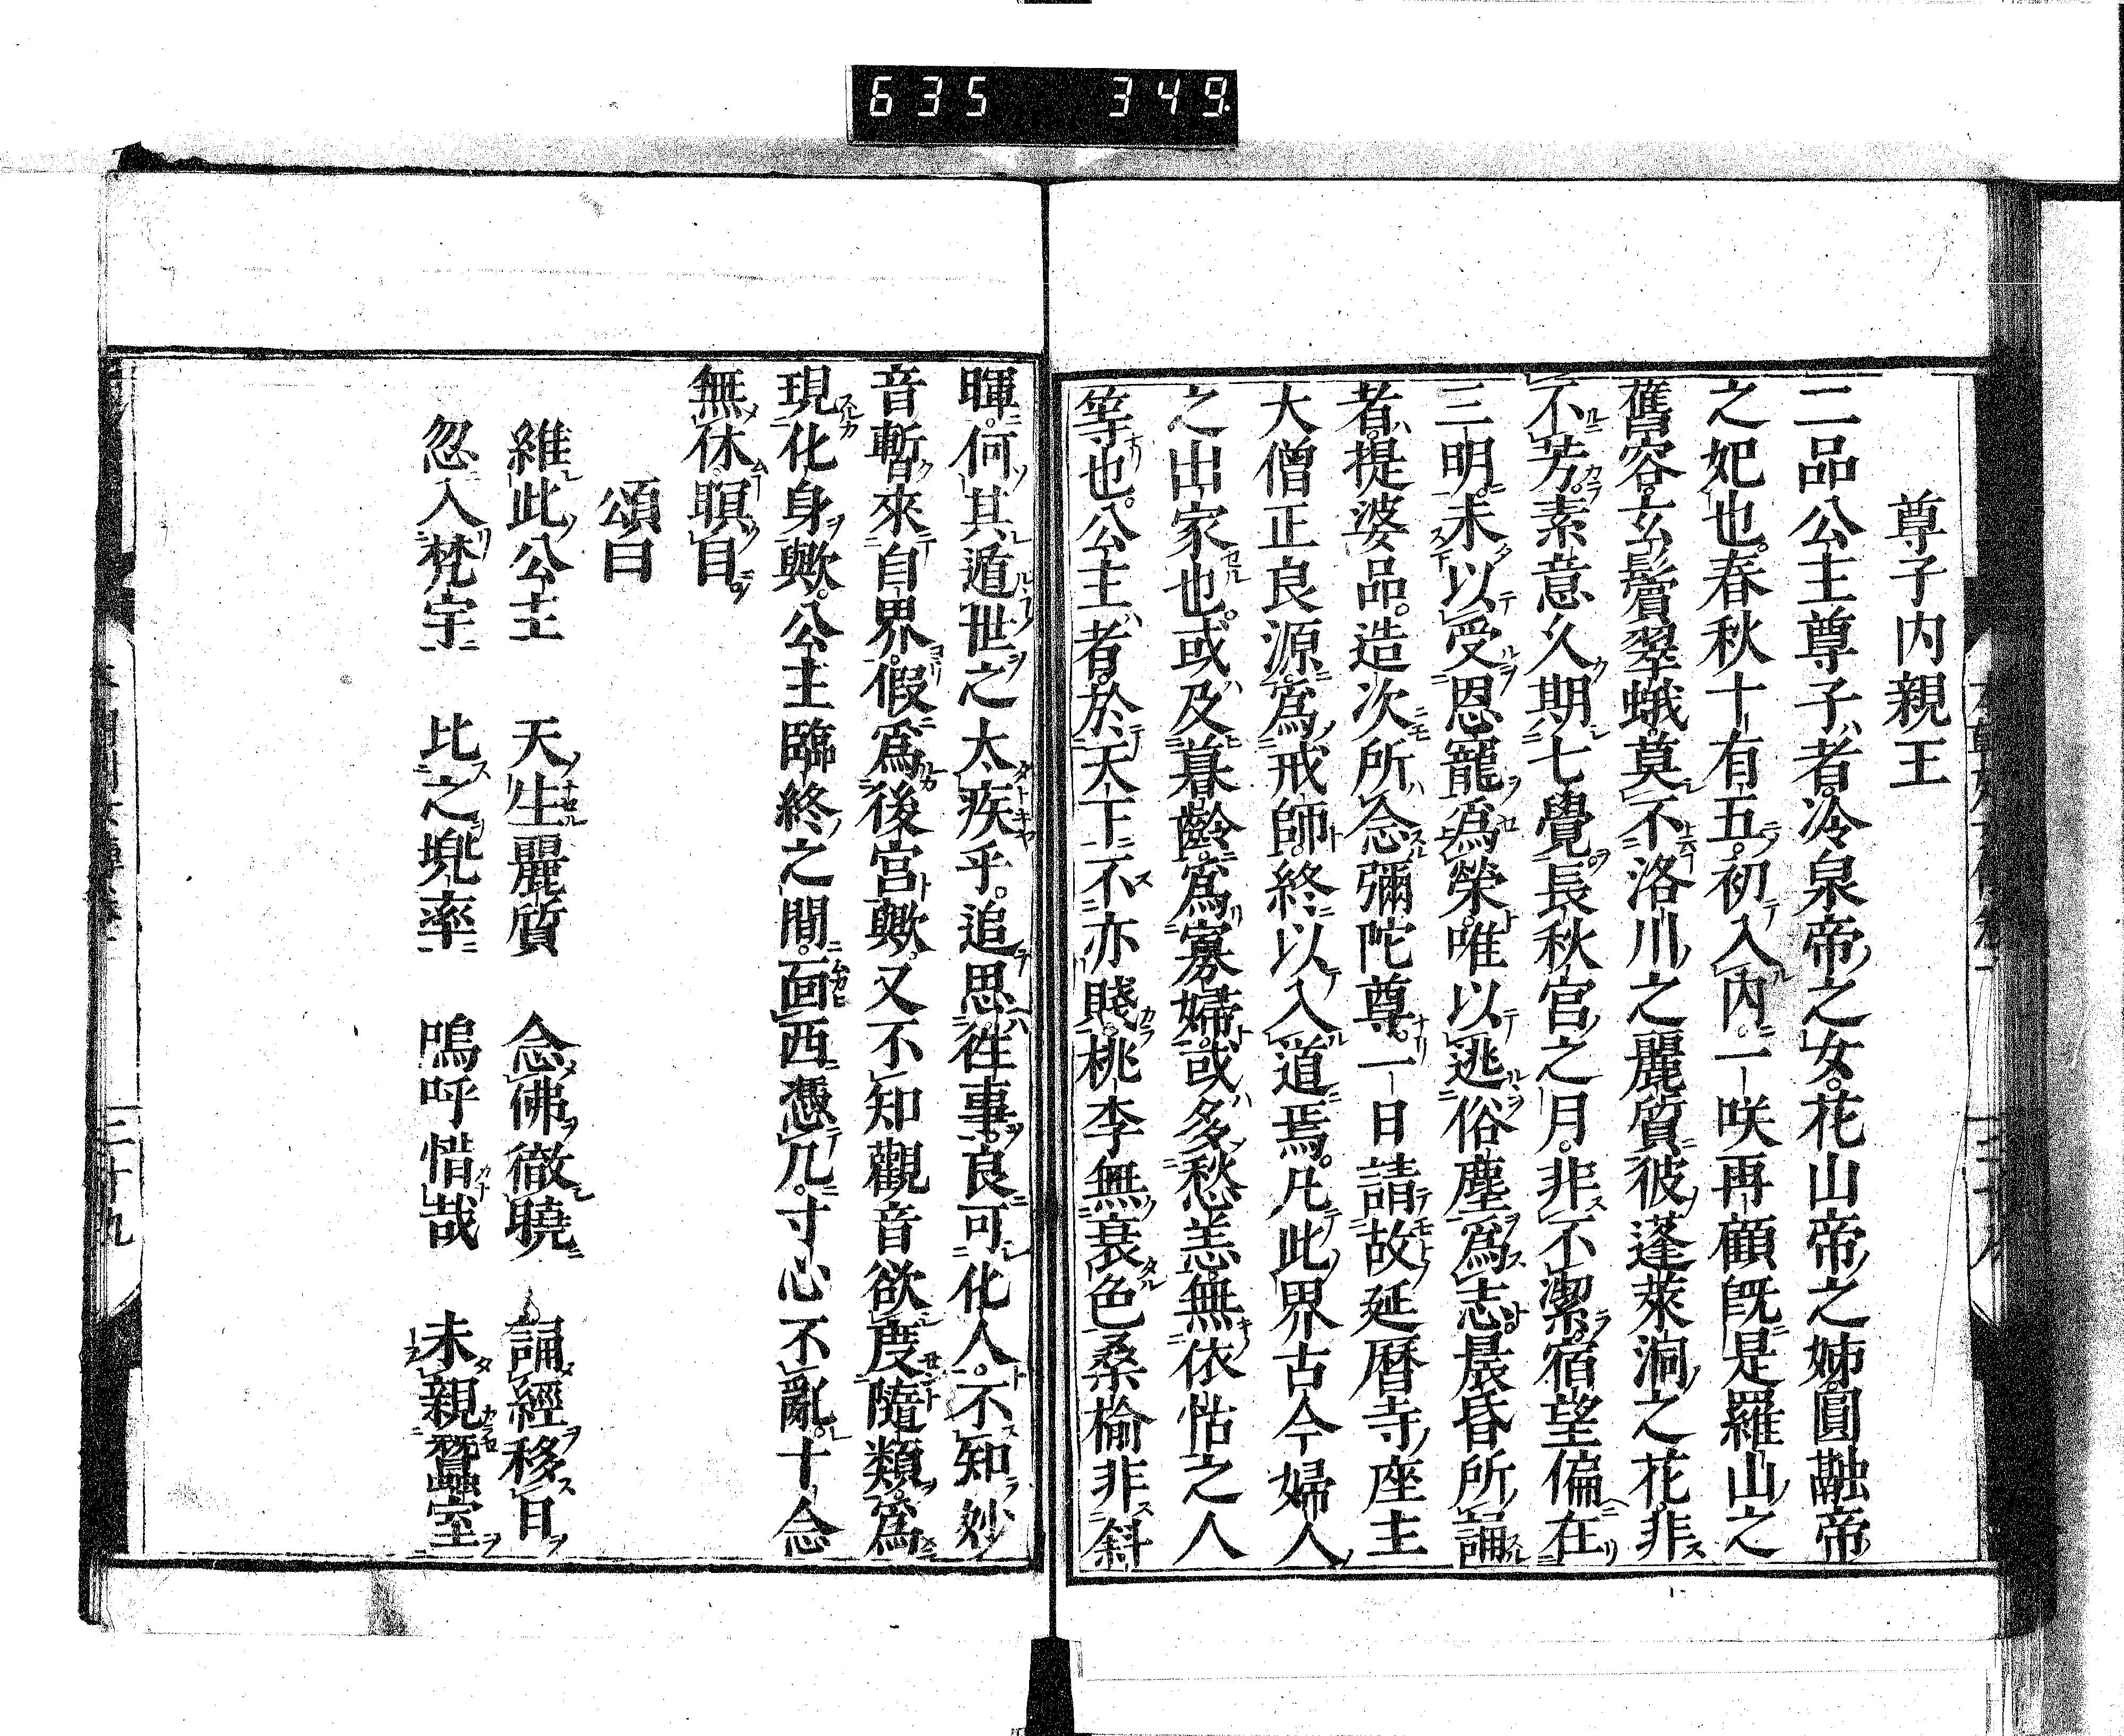 635 349
尊子内親王
二品公主尊子者。冷泉帝之女。花山帝之姊。圓融帝
之妃也。春秋十有五。初入内。一咲再顧。既是羅山之
舊容。玄鬢翠蛾。莫不洛川之麗質。彼蓬萊洞之花。非
不芳。素意久期七覺。長秋宮之月。非不潔。宿望偏在
三明。未以受恩寵爲榮。唯以逃俗塵爲志。晨昏所誦
者。提婆品。造次所念彌陀尊。一日請故延曆寺座主
大僧正良源。爲戒師。終以入道焉。凡此界古今婦人
之出家也。或及暮齡。爲寡婦。或多愁恙。無依怙之人
等也。公主者。於天下不亦賤。桃李無衰色。桑榆非斜
暉。何其遁世之太疾乎。追思往事。良可化人。不知妙
音暫來自界。假爲後宮歟。又不知觀音欲度隨類。爲
現化身歟。公主臨終之間。面西憑几。寸心不亂。十念
無休。瞑目。
頌曰
維此公主 天生麗質 念佛徹曉 誦經移日
忽入梵宇 比之兜率 嗚呼惜哉 未親蠶室
二十九